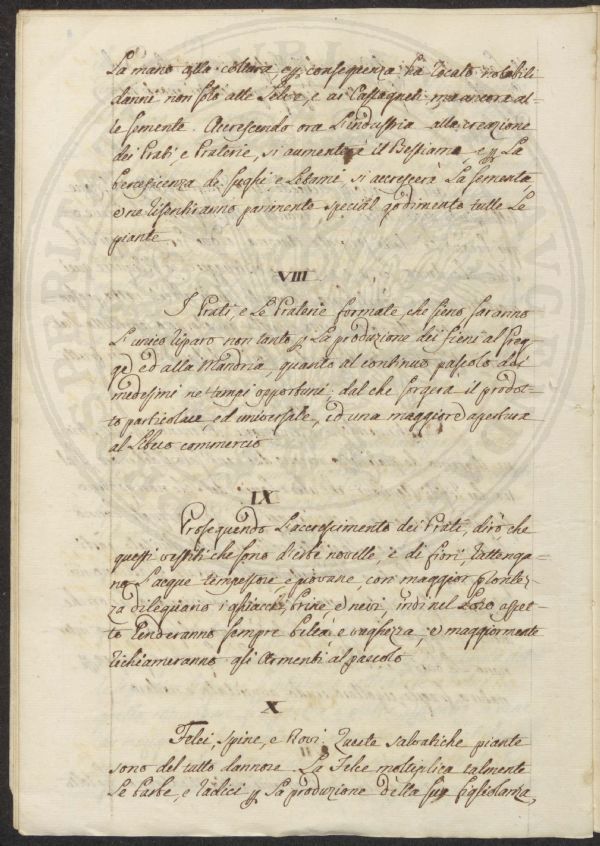 la mano alla coltura e per conseguenza ha recato notabili
danni non solo alle Selve, e ai Castagneti ma ancora al-
le semente. Accrescendo ora l'industria alla creazione
dei Prati, e Praterie, si aumenterà il Bestiame, e per la
de sughi, e Letami si accrescerà la sementa,
e ne risentiranno parimente special godimento tutte le
piante.
VIII
I Prati, e le Praterie formate, che sieno saranno
l'unico riparo non tanto per la produzione dei fieni al greg-
ge ed alla Mandria, quanto al continuo pascolo dei
medesimi ne' tempi opportuni, dal che sorgerà il prodot-
to particolare, ed universale, ed una maggiore apertura
al libero commercio.
IX
Proseguendo l'accrescimento dei Prati, dirò che
questi vestiti che sono d'erbe novelle, e di fiori, rattenga-
no l'acque tempestose, e piovane, con maggior prontez-
za dileguano i ghiacci, brine, e nevi, indi nel loro aspet-
to renderanno sempre beltà e vaghezza, e maggiormente
richiameranno gli Armenti al pascolo.
X
Felci, Spine, e Rovi. Queste salvatiche piante
sono del tutto dannose. La Felce moltiplica talmente
le barbe, e radici per la produzione della sua figliolanza,